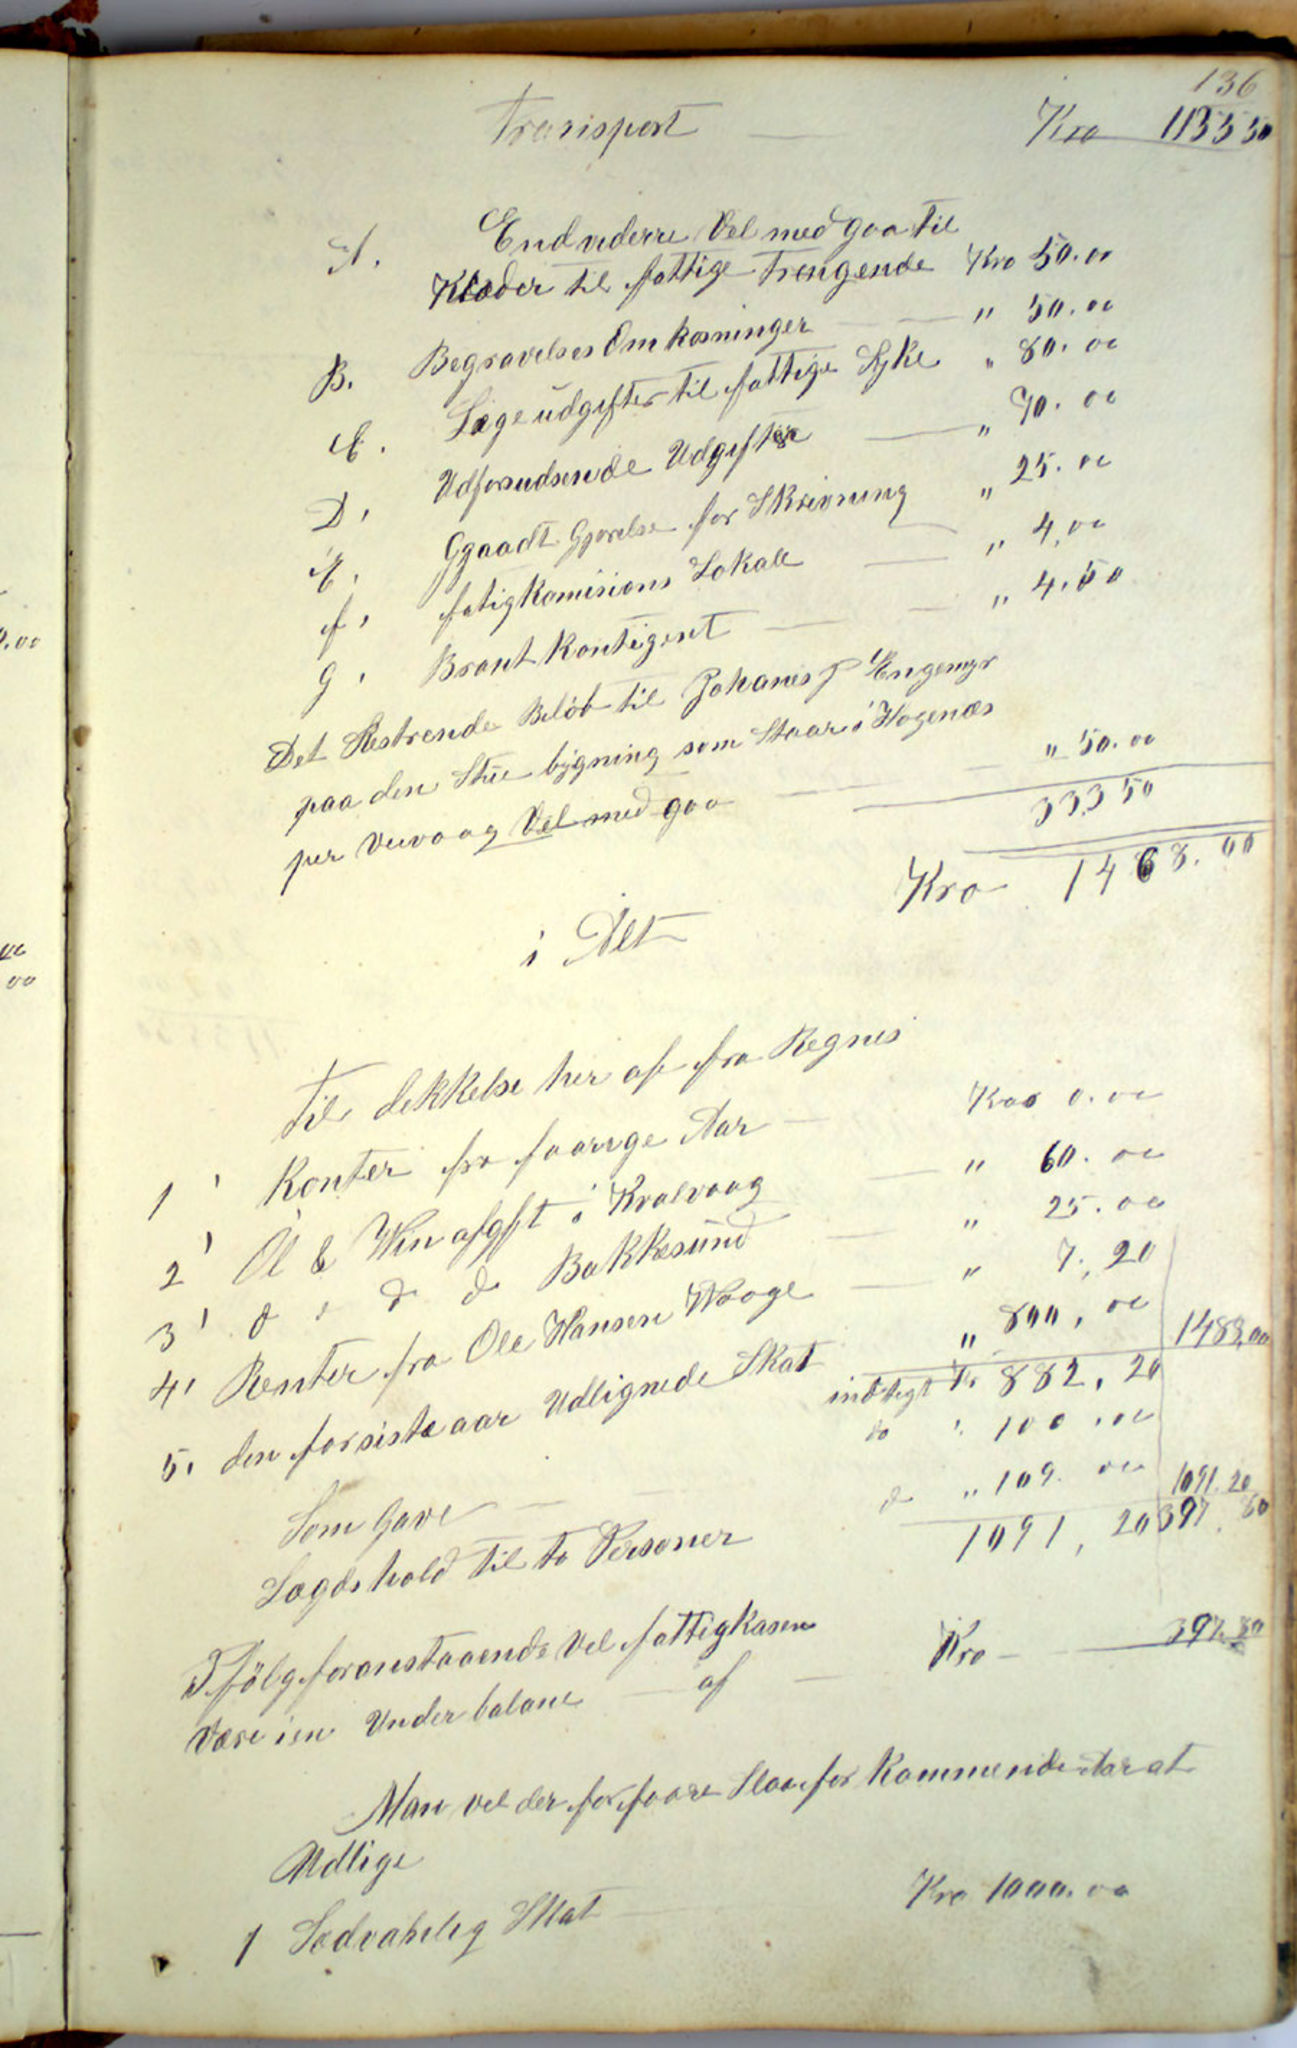 136
Transport Kro 1155 50
A. Endviderre Vel medgaa til
Klæder til fattige Trengende Kro 50.00
B. Begravelses Omkosninger " 50.00
C. Læge udgifter til fattige Syke " 80.00
D, Udforudsende Udgifter " 70.00
E, Ggaadt Gjorelse for Skrivning " 25.00
f, fatigkomisions Lokale " 4.00
g, Brant Kontigent " 4.50
Det Restrende Beløb til Johanes J Engemyr
paa den Stue bygning som Staar i Hogenæs
per Vevaag Vel med gaa " 50.00
333 50
i Alt Kro 1488.00
Til dekkelse her af fra Regnes
1, Konter fra faarige Aar Kro 0.00
2, Øl & Win afgft i Kralvaag " 60.00
3, d , d d Bakkesund " 25.00
4, Renter fra Ole Hansen Waage " 7,20
5, den forsiste aar Udlignede Skat " 800,00
indtegt Kr 882,20 1488,00
Som Gave do " 100,00
Lægdshold til to Personer d " 109.00 1091.20
1091,20 397.80
Ifølg foranstaaende Vel fattigkasen
Være i en Under balane af Kro 397.80
Man vel der for faare Slaa for Kommende Aar at
Udlige
1 Sædvahelig Skat Kro 1000.00